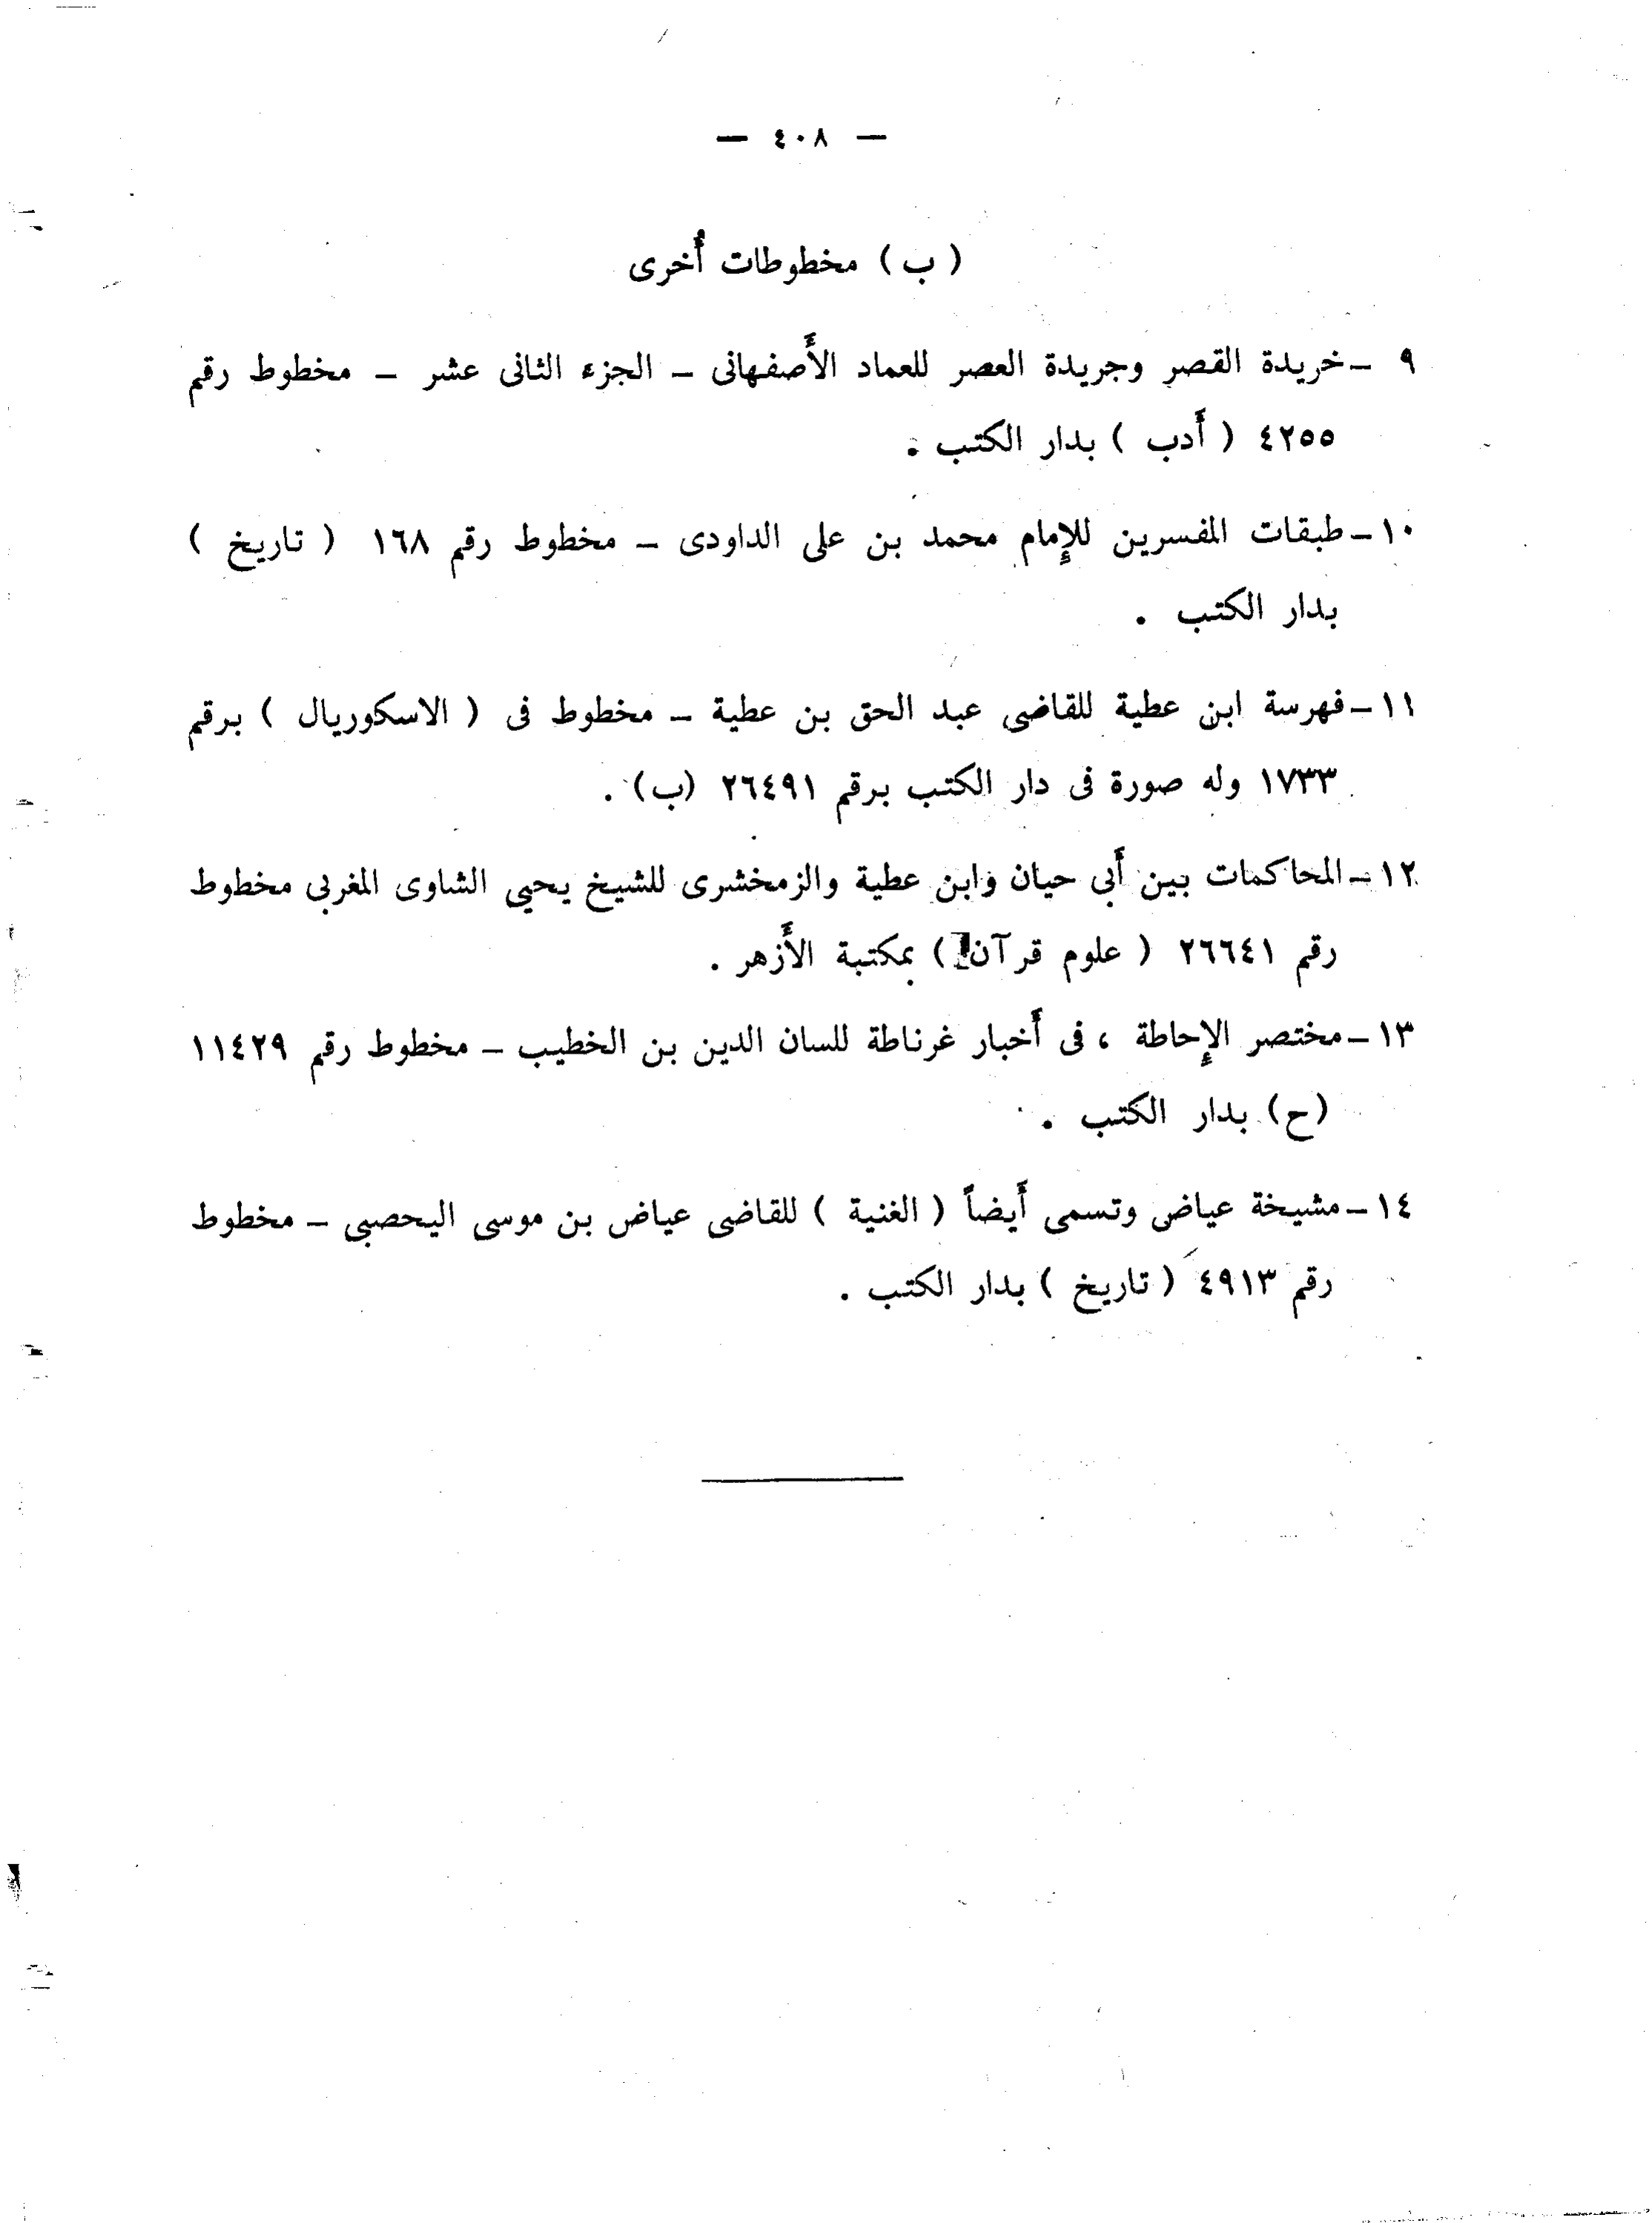 — ٤٠٨ —
( ب ) مخطوطات أُخرى
٩ – خريدة القصر وجريدة العصر للعماد الأَصفهانى – الجزء الثانى عشر – مخطوط رقم
٤٢٥٥ ( أَدب ) بدار الكتب .
١٠ – طبقات المفسرين للإِمام محمد بن على الداودى – مخطوط رقم ١٦٨ ( تاريخ )
بدار الكتب .
١١ – فهرسة ابن عطية للقاضى عبد الحق بن عطية – مخطوط فى ( الاسكوريال ) برقم
١٧٣٣ وله صورة فى دار الكتب برقم ٢٦٤٩١ (ب) .
١٢ – المحاكمات بين أَبى حيان وابن عطية والزمخشرى للشيخ يحيى الشاوى المغربى مخطوط
رقم ٢٦٦٤١ ( علوم قرآن ) بمكتبة الأَزهر .
١٣ – مختصر الإِحاطة ، فى أَخبار غرناطة للسان الدين بن الخطيب – مخطوط رقم ١١٤٢٩
(ح) بدار الكتب .
١٤ – مشيخة عياض وتسمى أَيضاً ( الغنية ) للقاضى عياض بن موسى اليحصبى – مخطوط
رقم ٤٩١٣ ( تاريخ ) بدار الكتب .